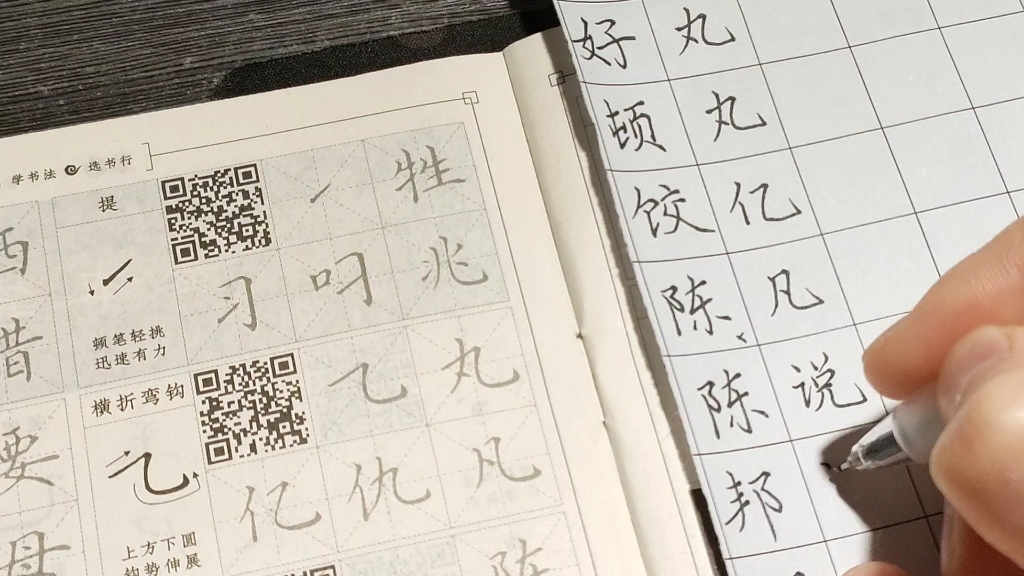 学书法 选书行
提
牲
西
习 叼 兆
顿笔轻挑
迅速有力
昔
横折弯钩
乙 丸
要
亿 仇 凡
上方下圆
钩势伸展
母
陈
好 丸
顿 丸
饺 亿
陈 凡
陈 说
邦